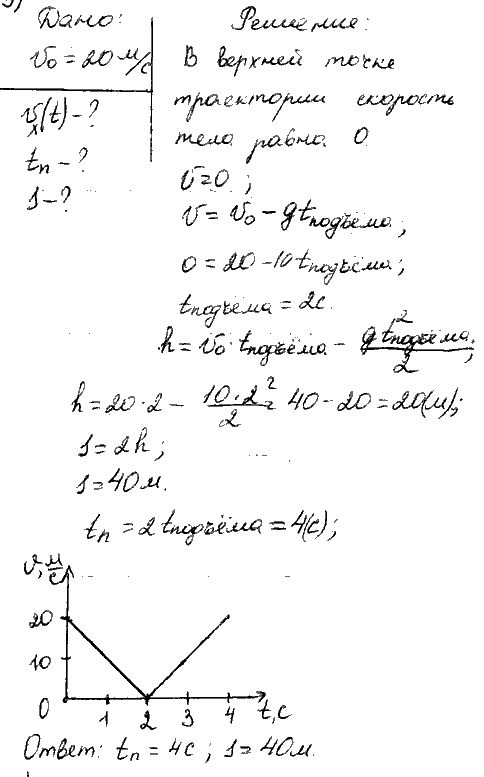 Дано:
v₀ = 20 м/с
vₓ(t) - ?
tп - ?
s - ?
Решение:
В верхней точке
траектории скорость
тела равна 0
v = 0 ;
v = v₀ - gtподъёма ;
0 = 20 - 10 tподъёма ;
tподъёма = 2с.
h = v₀ · tподъёма - gt²подъёма / 2 ;
h = 20 · 2 - 10 · 2² / 2 = 40 - 20 = 20(м) ;
s = 2h ;
s = 40 м.
tп = 2 tподъёма = 4(с) ;
v, м/с
20
10
0
1 2 3 4 t, с
Ответ: tп = 4с ; s = 40 м.